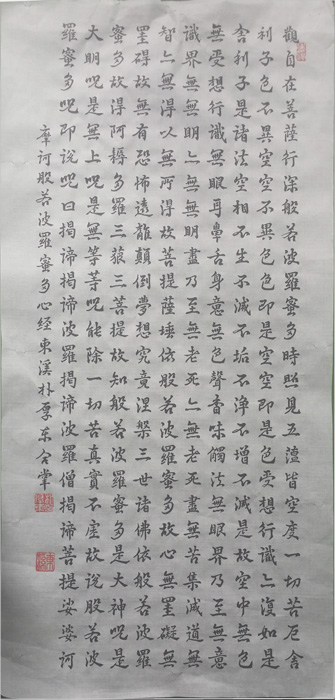 觀自在菩薩行深般若波羅蜜多時照見五蘊皆空度一切苦厄舍
利子色不異空空不異色色即是空空即是色受想行識亠復如是
舍利子是諸法空相不生不滅不垢不淨不增不減是故空中無色
無受想行識無眼耳鼻舌身意無色聲香味觸法無眼界乃至無意
識界無無明亠無無明盡乃至無老死亠無老死盡無苦集滅道無
智亠無得以無所得故菩提薩埵依般若波羅蜜多故心無罣礙無
罣碍故無有恐怖遠離顛倒夢想究竟涅槃三世諸佛依般若波羅
蜜多故得阿耨多羅三藐三菩提故知般若波羅蜜多是大神呪是
大明呪是無上呪是無等等呪能除一切苦真實不虛故說般若波
羅蜜多呪即說呪曰揭諦揭諦波羅揭諦波羅僧揭諦菩提娑婆訶
摩訶般若波羅蜜多心経東溪朴厚东合掌